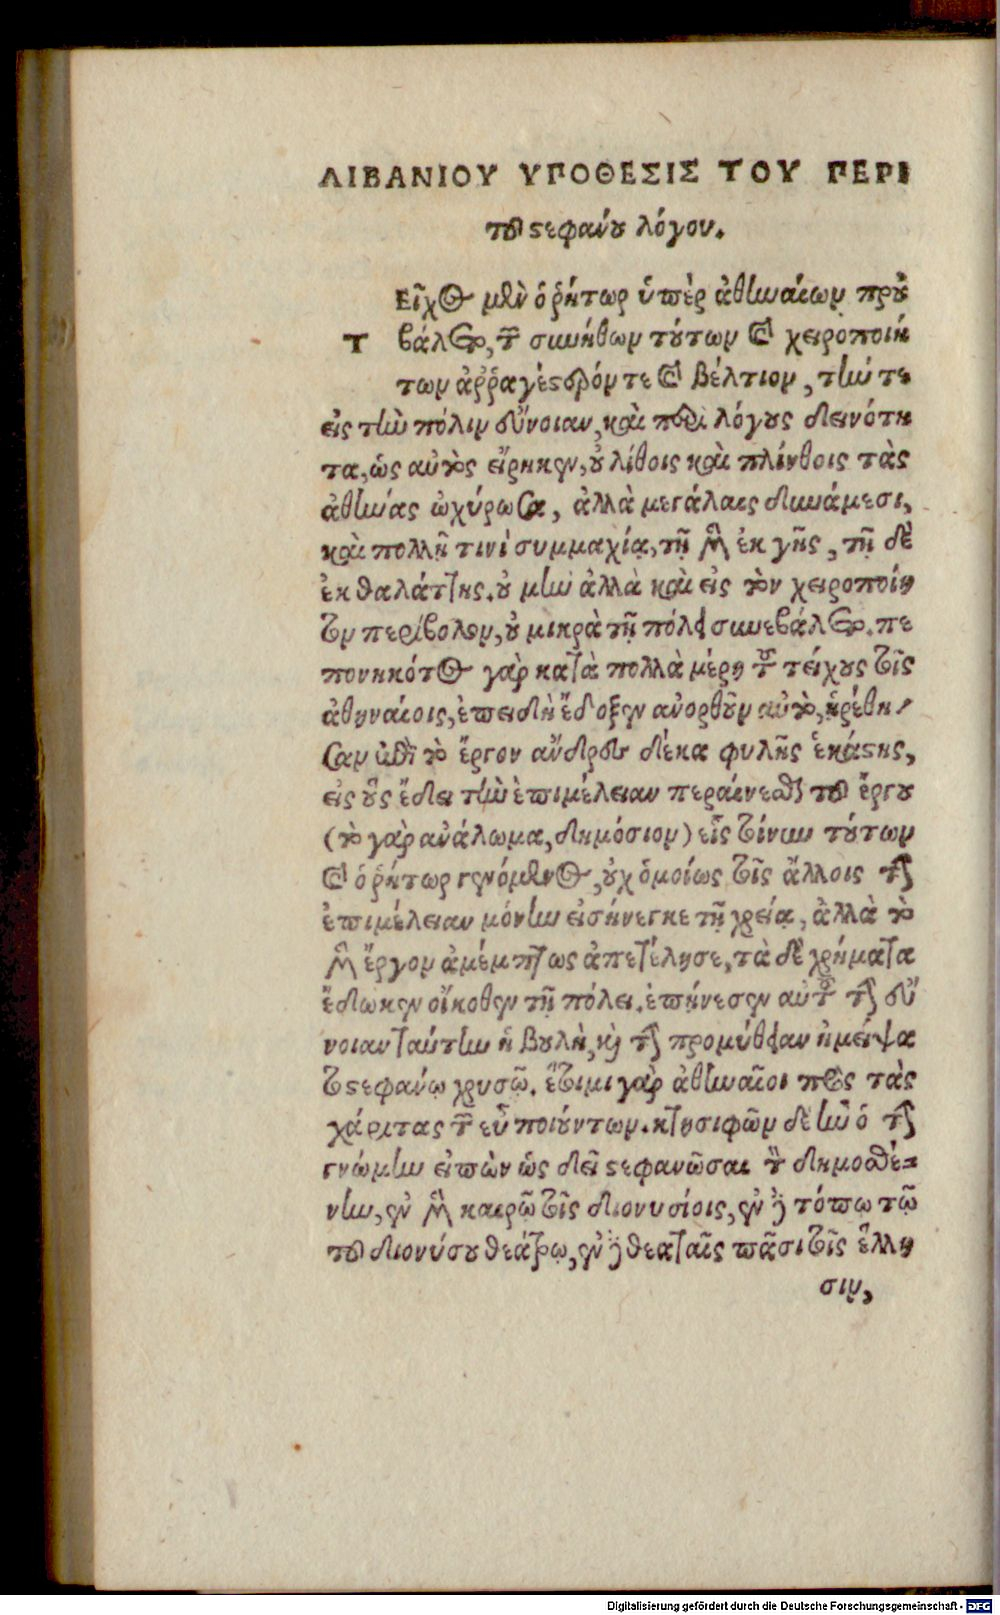 ΛΙΒΑΝΙΟΥ ΥΠΟΘΕΣΙΣ ΤΟΥ ΠΕΡΙ
τοῦ στεφάνου λόγου.
Τ ΕῖχΟς μὲν ὁ ῥήτωρ ὑπὲρ ἀθηναίων προὐ
βάλετο, τῶν συνήθων τούτων καὶ χειροποιή
των ἀῤῥαγέστερόν τε καὶ βέλτιον, τήν τε
εἰς τὴν πόλιν εὔνοιαν, καὶ περὶ λόγους δεινότη
τα, ὡς αὐτὸς εἴρηκεν, οὐ λίθοις καὶ πλίνθοις τὰς
ἀθήνας ὠχύρωσα, ἀλλὰ μεγάλαις δυνάμεσι,
καὶ πολλῇ τινὶ συμμαχίᾳ, τῇ μὲν ἐκ γῆς, τῇ δὲ
ἐκ θαλάττης. οὐ μὴν ἀλλὰ καὶ εἰς τὸν χειροποίη
τον περίβολον, οὐ μικρὰ τῇ πόλει συνεβάλετο. πε
πονηκότος γὰρ κατὰ πολλὰ μέρη τοῦ τείχους τοῖς
ἀθηναίοις, ἐπειδὴ ἔδοξεν ἀνορθοῦν αὐτὸ, ᾑρέθη
σαν ἐπὶ τὸ ἔργον ἄνδρες δέκα φυλῆς ἑκάστης,
εἰς οὓς ἔδει τὴν ἐπιμέλειαν περαίνεσθαι τοῦ ἔργου
(τὸ γὰρ ἀνάλωμα, δημόσιον) εἷς τοίνυν τούτων
καὶ ὁ ῥήτωρ γενόμενος, οὐχ ὁμοίως τοῖς ἄλλοις τὴν
ἐπιμέλειαν μόνην εἰσήνεγκε τῇ χρείᾳ, ἀλλὰ τὸ
μὲν ἔργον ἀμέμπτως ἀπετέλησε, τὰ δὲ χρήματα
ἔδωκεν οἴκοθεν τῇ πόλει. ἐπῄνεσεν αὐτοῦ τὴν εὔ
νοιαν ταύτην ἡ βουλὴ, καὶ τὴν προμύθειαν ἠμείψα
το στεφάνῳ χρυσῷ. ἕτοιμοι γὰρ ἀθηναῖοι πρὸς τὰς
χάριτας τῶν εὖ ποιούντων. κτησιφῶν δὲ ἦν ὁ τὴν
γνώμην εἰπὼν ὡς δεῖ στεφανῶσαι τὸν δημοσθέ-
νην, ἐν μὲν καιρῷ τοῖς διονυσίοις, ἐν δὲ τόπῳ τῷ
τοῦ διονύσου θεάτρῳ, ἐν δὲ θεαταῖς πᾶσι τοῖς ἕλλη
σιν,
Digitalisierung gefördert durch die Deutsche Forschungsgemeinschaft - DFG